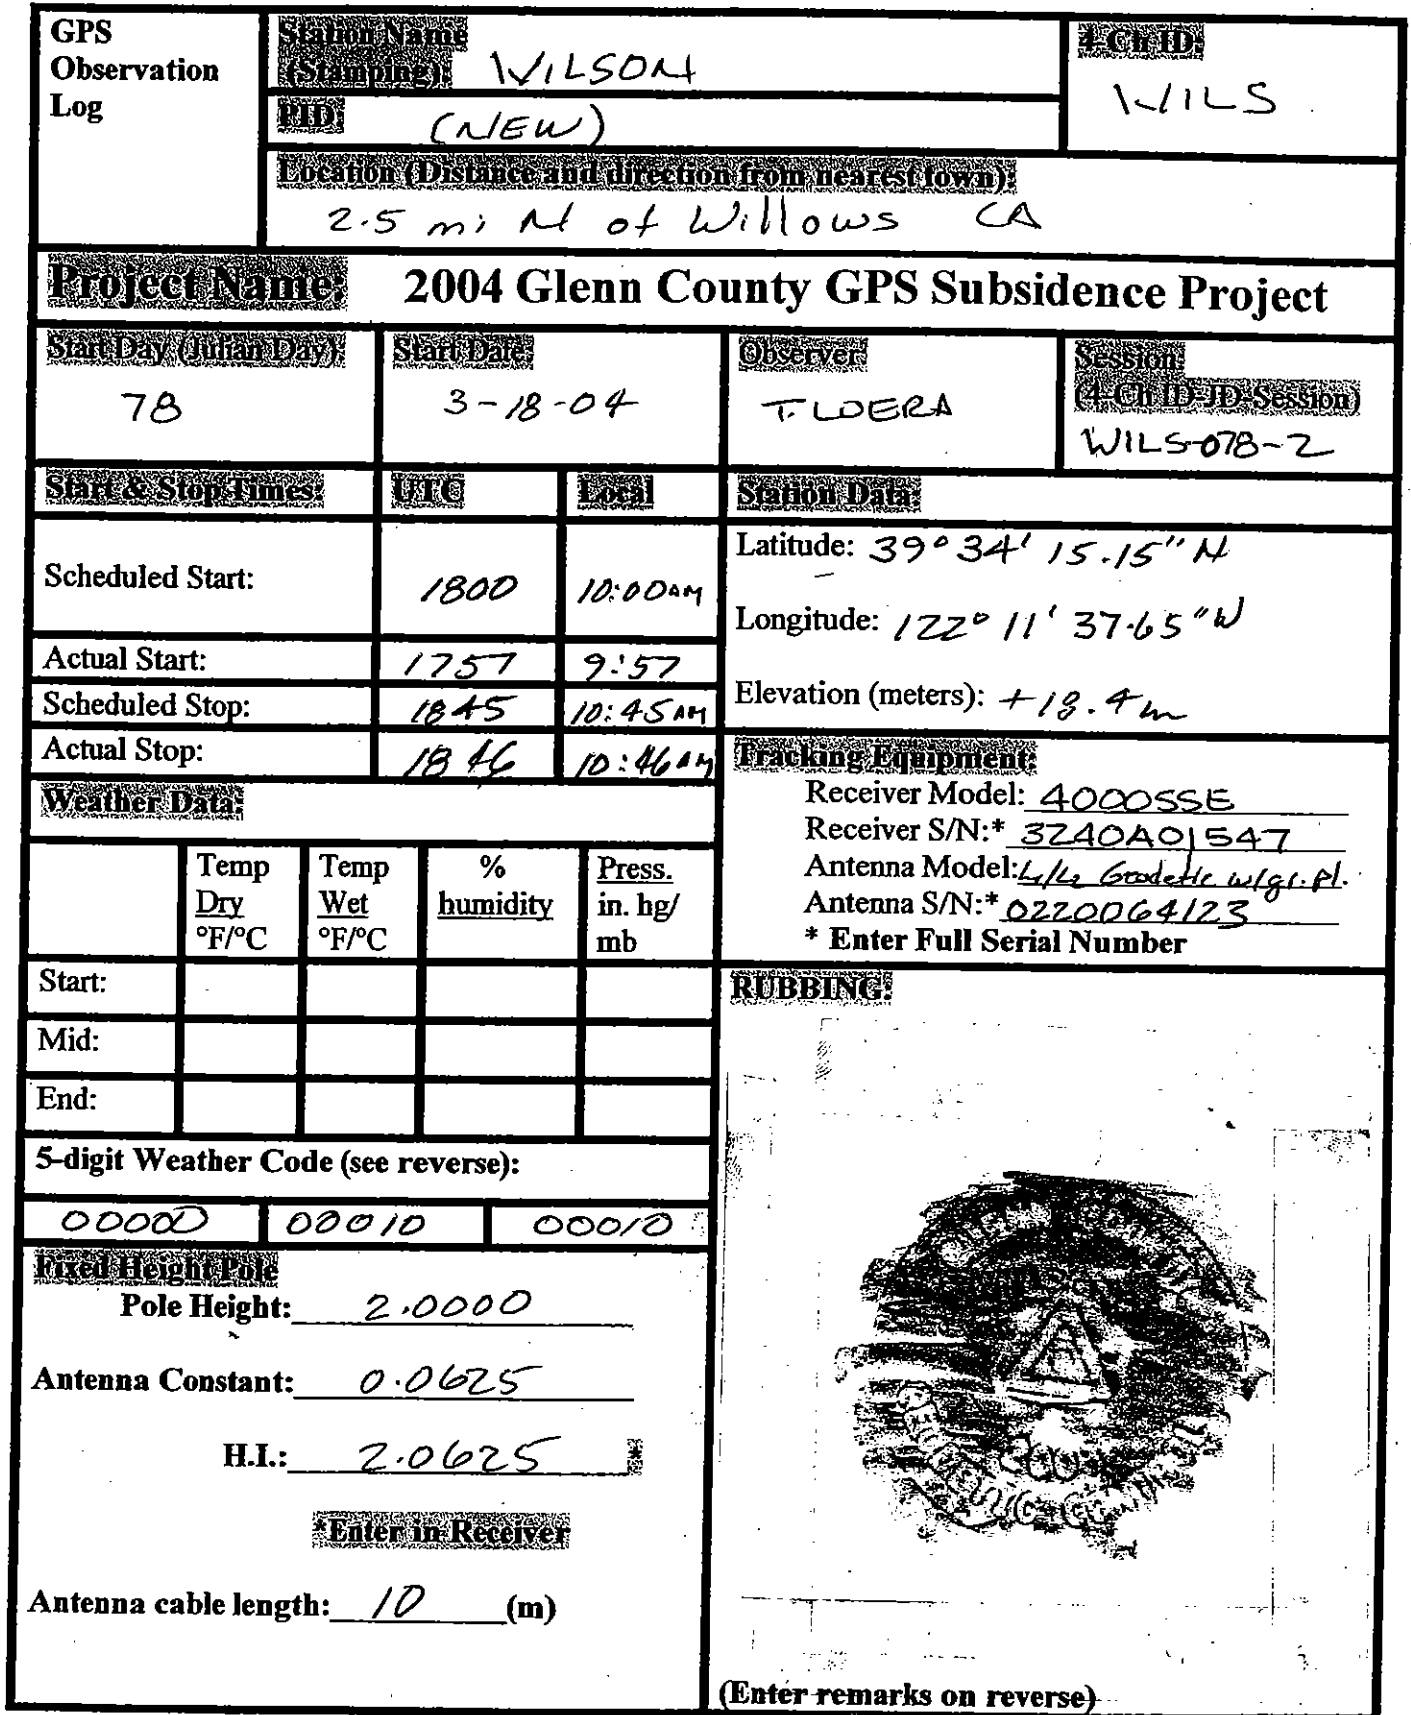 GPS
Observation
Log
Station Name
(Stamping): WILSON
4-Ch ID:
WILS
PID: (NEW)
Location (Distance and direction from nearest town):
2.5 mi N of Willows CA
Project Name: 2004 Glenn County GPS Subsidence Project
Start Day (Julian Day):
78
Start Date:
3-18-04
Observer:
T. LOERA
Session:
(4-Ch ID-JD-Session)
WILS-078-2
Start & Stop Times: UTC Local
Scheduled Start: 1800 10:00AM
Actual Start: 1757 9:57
Scheduled Stop: 1845 10:45AM
Actual Stop: 1846 10:46AM
Station Data:
Latitude: 39° 34' 15.15" N
Longitude: 122° 11' 37.65" W
Elevation (meters): +18.4 m
Tracking Equipment:
Receiver Model: 4000SSE
Receiver S/N:* 3240A01547
Antenna Model: L1/L2 Geodetic w/gr. pl.
Antenna S/N:* 0220064123
* Enter Full Serial Number
Weather Data:
Temp
Dry
°F/°C
Temp
Wet
°F/°C
%
humidity
Press.
in. hg/
mb
Start:
Mid:
End:
5-digit Weather Code (see reverse):
00000 00010 00010
Fixed Height Pole
Pole Height: 2.0000
Antenna Constant: 0.0625
H.I.: 2.0625 *
*Enter in Receiver
Antenna cable length: 10 (m)
RUBBING:
(Enter remarks on reverse)